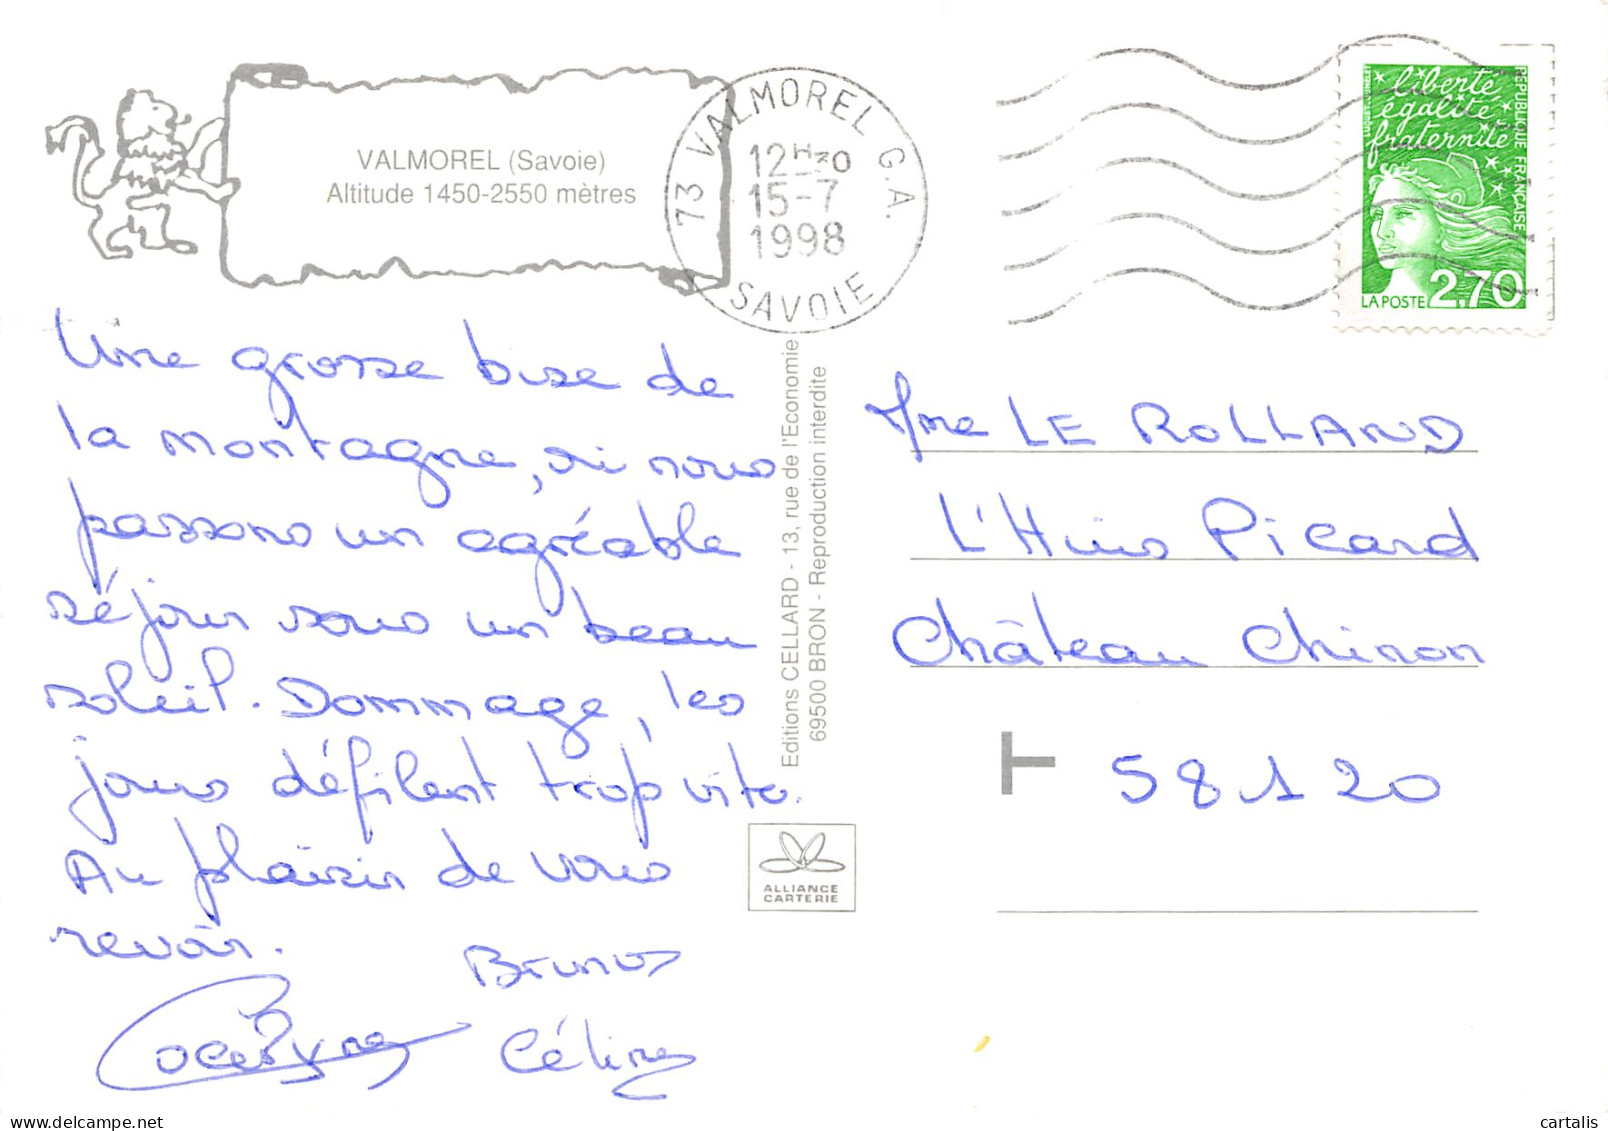 VALMOREL (Savoie)
Altitude 1450-2550 mètres
73 VALMOREL G.A.
12H30
15-7
1998
SAVOIE
liberté
égalité
fraternité
RÉPUBLIQUE FRANÇAISE
LA POSTE 2,70
Une grosse bise de
la montagne, où nous
passons un agréable
séjour sous un beau
soleil. Dommage, les
jours défilent trop vite.
Au plaisir de vous
revoir.
Bruno
Céline
Editions CELLARD - 13, rue de l'Economie
69500 BRON - Reproduction interdite
Mme LE ROLLAND
L'Huis Picard
Château Chinon
T 58120
ALLIANCE
CARTERIE
delcampe.net
cartalis